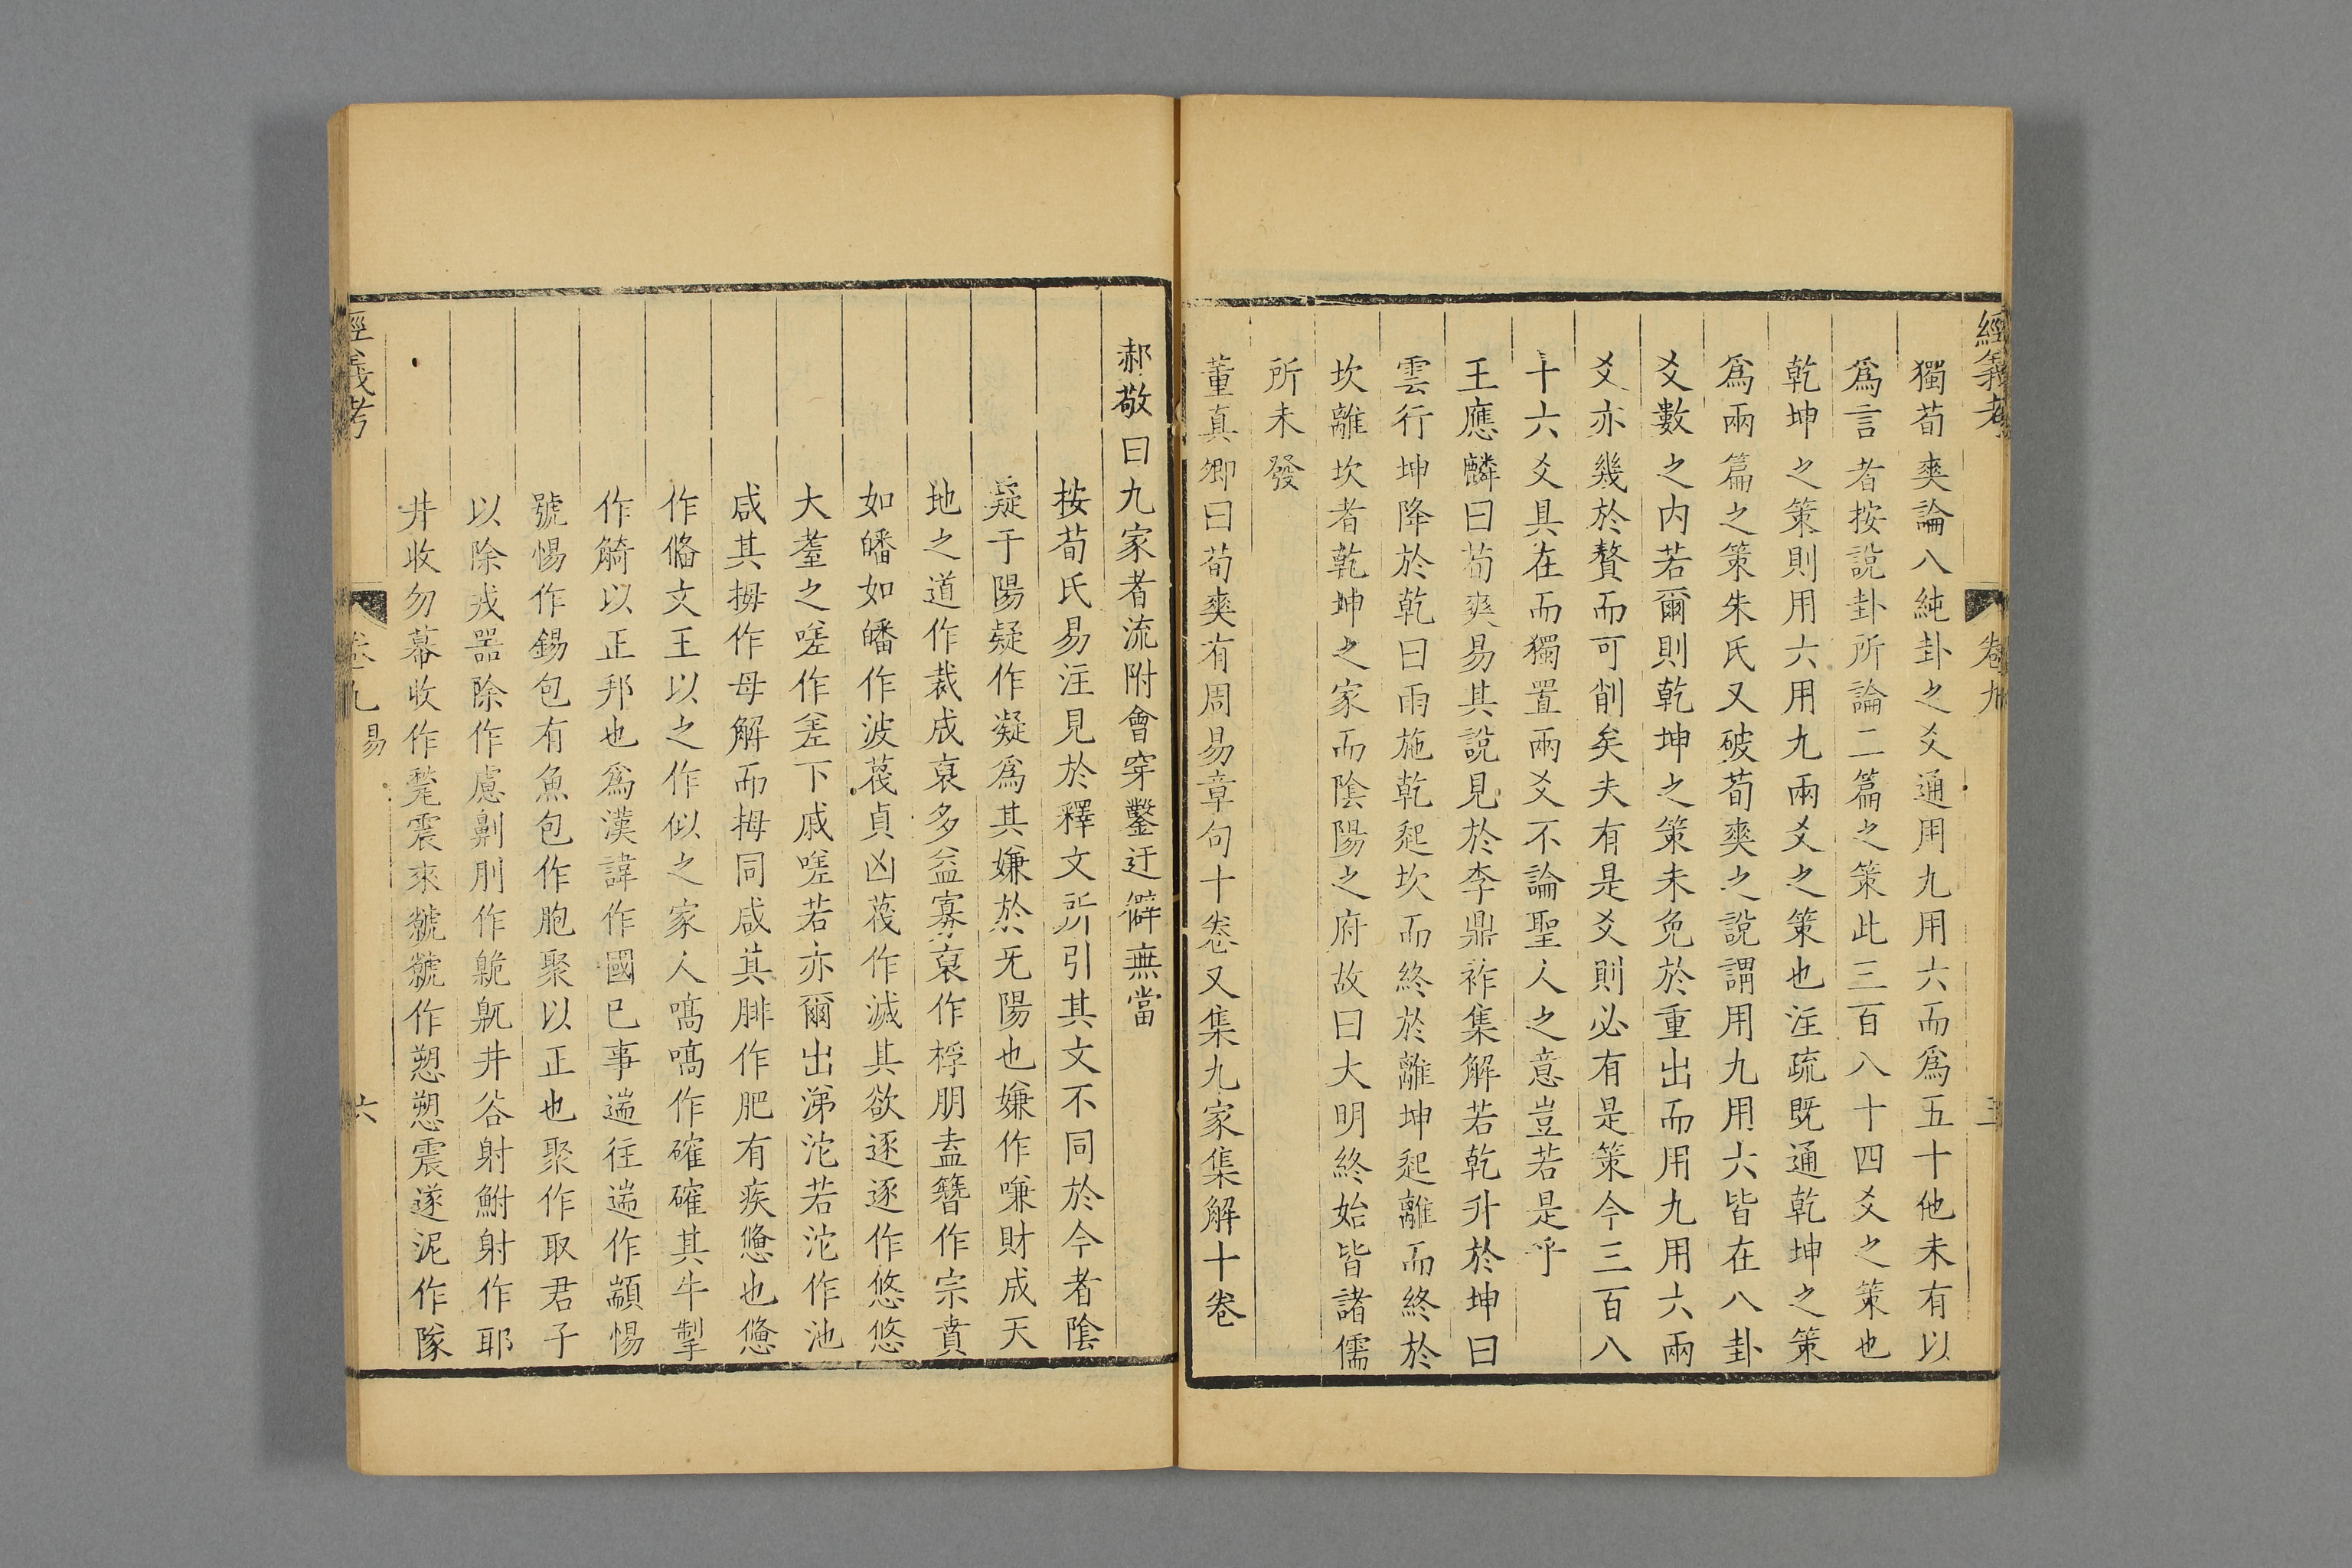 經義考
卷九
獨荀爽論八純卦之爻通用九用六而爲五十他未有以
爲言者按說卦所論二篇之策此三百八十四爻之策也
乾坤之策則用六用九兩爻之策也注疏既通乾坤之策
爲兩篇之策朱氏又破荀爽之說謂用九用六皆在八卦
爻數之内若爾則乾坤之策未免於重出而用九用六兩
爻亦幾於贅而可削矣夫有是爻則必有是策今三百八
十六爻具在而獨置兩爻不論聖人之意豈若是乎
王應麟曰荀爽易其說見於李鼎祚集解若乾升於坤曰
雲行坤降於乾曰雨施乾起坎而終於離坤起離而終於
坎離坎者乾坤之家而陰陽之府故曰大明終始皆諸儒
所未發
董真卿曰荀爽有周易章句十卷又集九家集解十卷
郝敬曰九家者流附會穿鑿迂僻無當
按荀氏易注見於釋文所引其文不同於今者陰
疑于陽疑作凝爲其嫌於无陽也嫌作嗛財成天
地之道作裁成裒多益寡裒作桴朋盍簪作宗賁
如皤如皤作波蔑貞凶蔑作滅其欲逐逐作悠悠
大耋之嗟作差下戚嗟若亦爾出涕沱若沱作池
咸其拇作母解而拇同咸其腓作肥有疾憊也憊
作偹文王以之作似之家人嗃嗃作確確其牛掣
作觭以正邦也爲漢諱作國已事遄往遄作顓惕
號惕作錫包有魚包作胞聚以正也聚作取君子
以除戎器除作慮劓刖作臲卼井谷射鮒射作耶
井收勿幕收作甃震來虩虩作愬愬震遂泥作隊
經義考
卷九
易
六